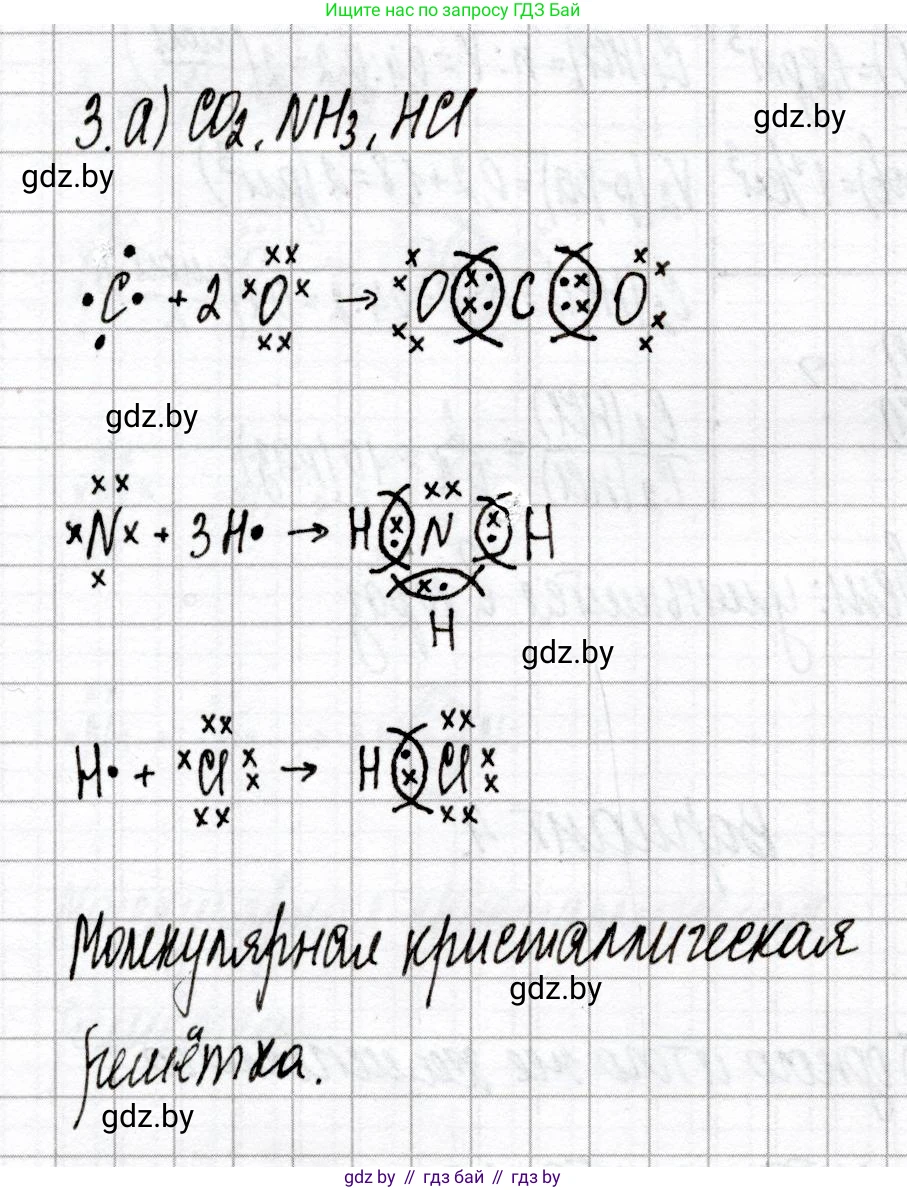 Ищите нас по запросу ГДЗ Бай
3. а) CO2, NH3, HCl
gdz.by
gdz.by
·C· + 2 O → O C O
gdz.by
N + 3H· → H N H
H
gdz.by
H· + Cl → H Cl
Молекулярная кристаллическая
gdz.by
решётка.
gdz.by
gdz by // гдз бай // гдз by